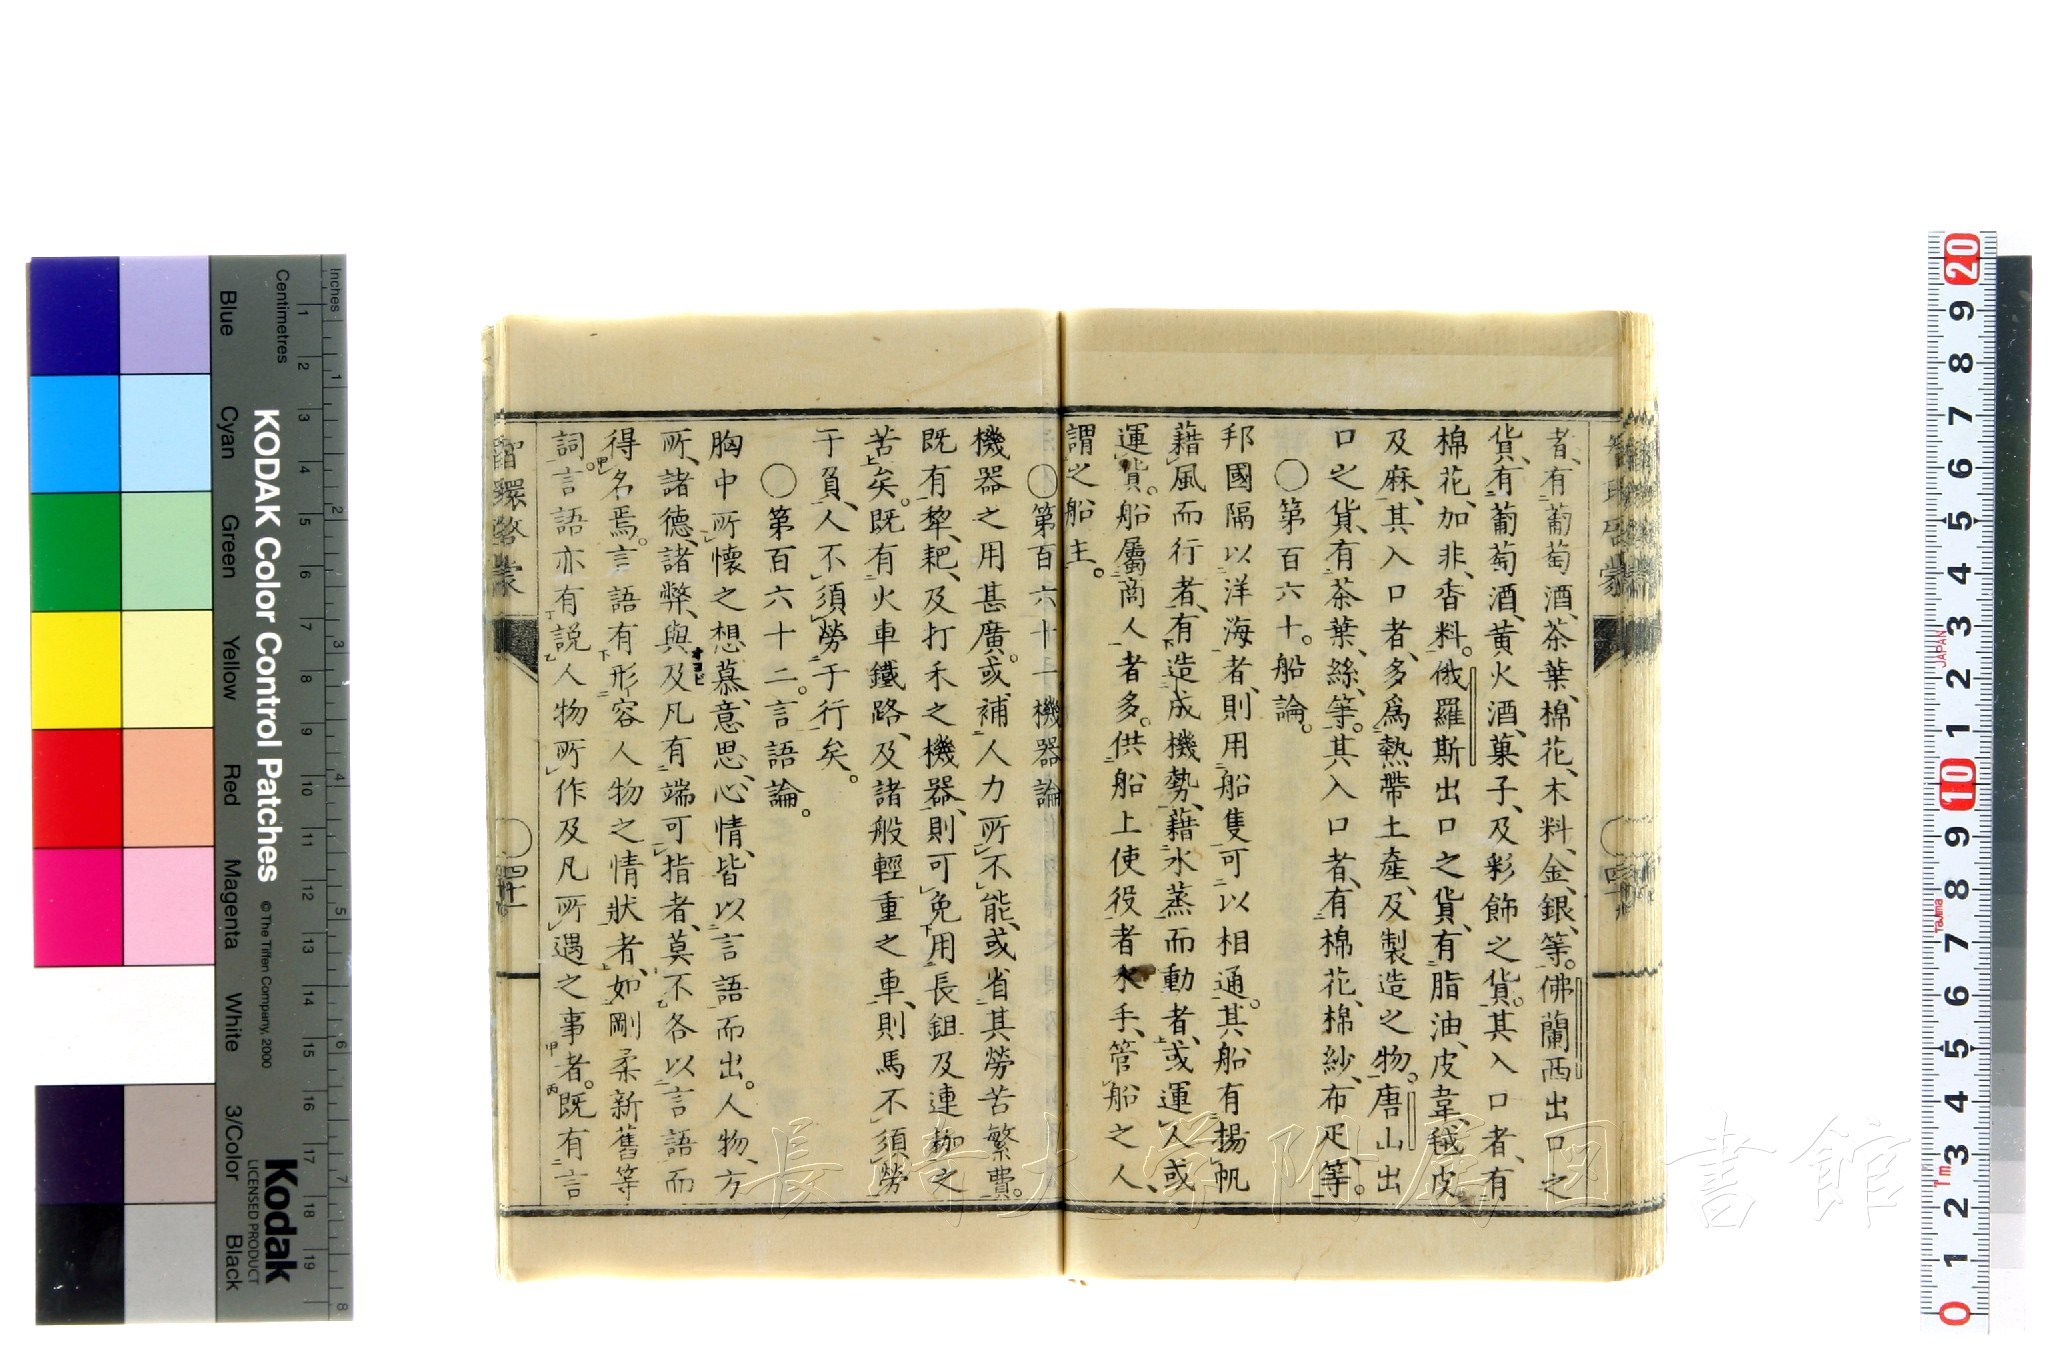 者、有葡萄酒、茶葉、棉花、木料、金、銀、等。佛蘭西出口之
貨、有葡萄酒、黃火酒、菓子、及彩飾之貨。其入口者、有
棉花、加非、香料。俄羅斯出口之貨、有脂油、皮韋、毧皮
及麻、其入口者、多爲熱帶土產、及製造之物。唐山出
口之貨、有茶葉、絲、等。其入口者、有棉花、棉紗、布疋、等。
〇第百六十。船論。
邦國隔以洋海者、則用船隻可以相通。其船有揚帆
藉風而行者、有造成機勢、藉水蒸而動者、或運人或
運貨。船屬商人者多。供船上使役者水手、管船之人、
謂之船主。
〇第百六十一機器論
機器之用甚廣。或補人力所不能、或省其勞苦繁費。
既有犂、耙、及打禾之機器、則可免用長鉏及連耞之
苦矣。既有火車鐵路、及諸般輕重之車、則馬不須勞
于負、人不須勞于行矣。
〇第百六十二。言語論。
胸中所懷之想慕、意思、心情、皆以言語而出。人物、方
所、諸德、諸弊、與及凡有端可指者、莫不各以言語而
得名焉。言語有形容人物之情狀者、如剛柔新舊等
詞。言語亦有説人物所作及凡所遇之事者。既有言
四十一
長崎大学附属図書館
KODAK Color Control Patches
© The Tiffen Company, 2000
Kodak
LICENSED PRODUCT
Inches
Centimetres
Blue
Cyan
Green
Yellow
Red
Magenta
White
3/Color
Black
1 2 3 4 5 6 7 8 9 10 11 12 13 14 15 16 17 18 19
1 2 3 4 5 6 7 8
20 9 8 7 6 5 4 3 2 1 10 9 8 7 6 5 4 3 2 1 0
JAPAN
Tajima